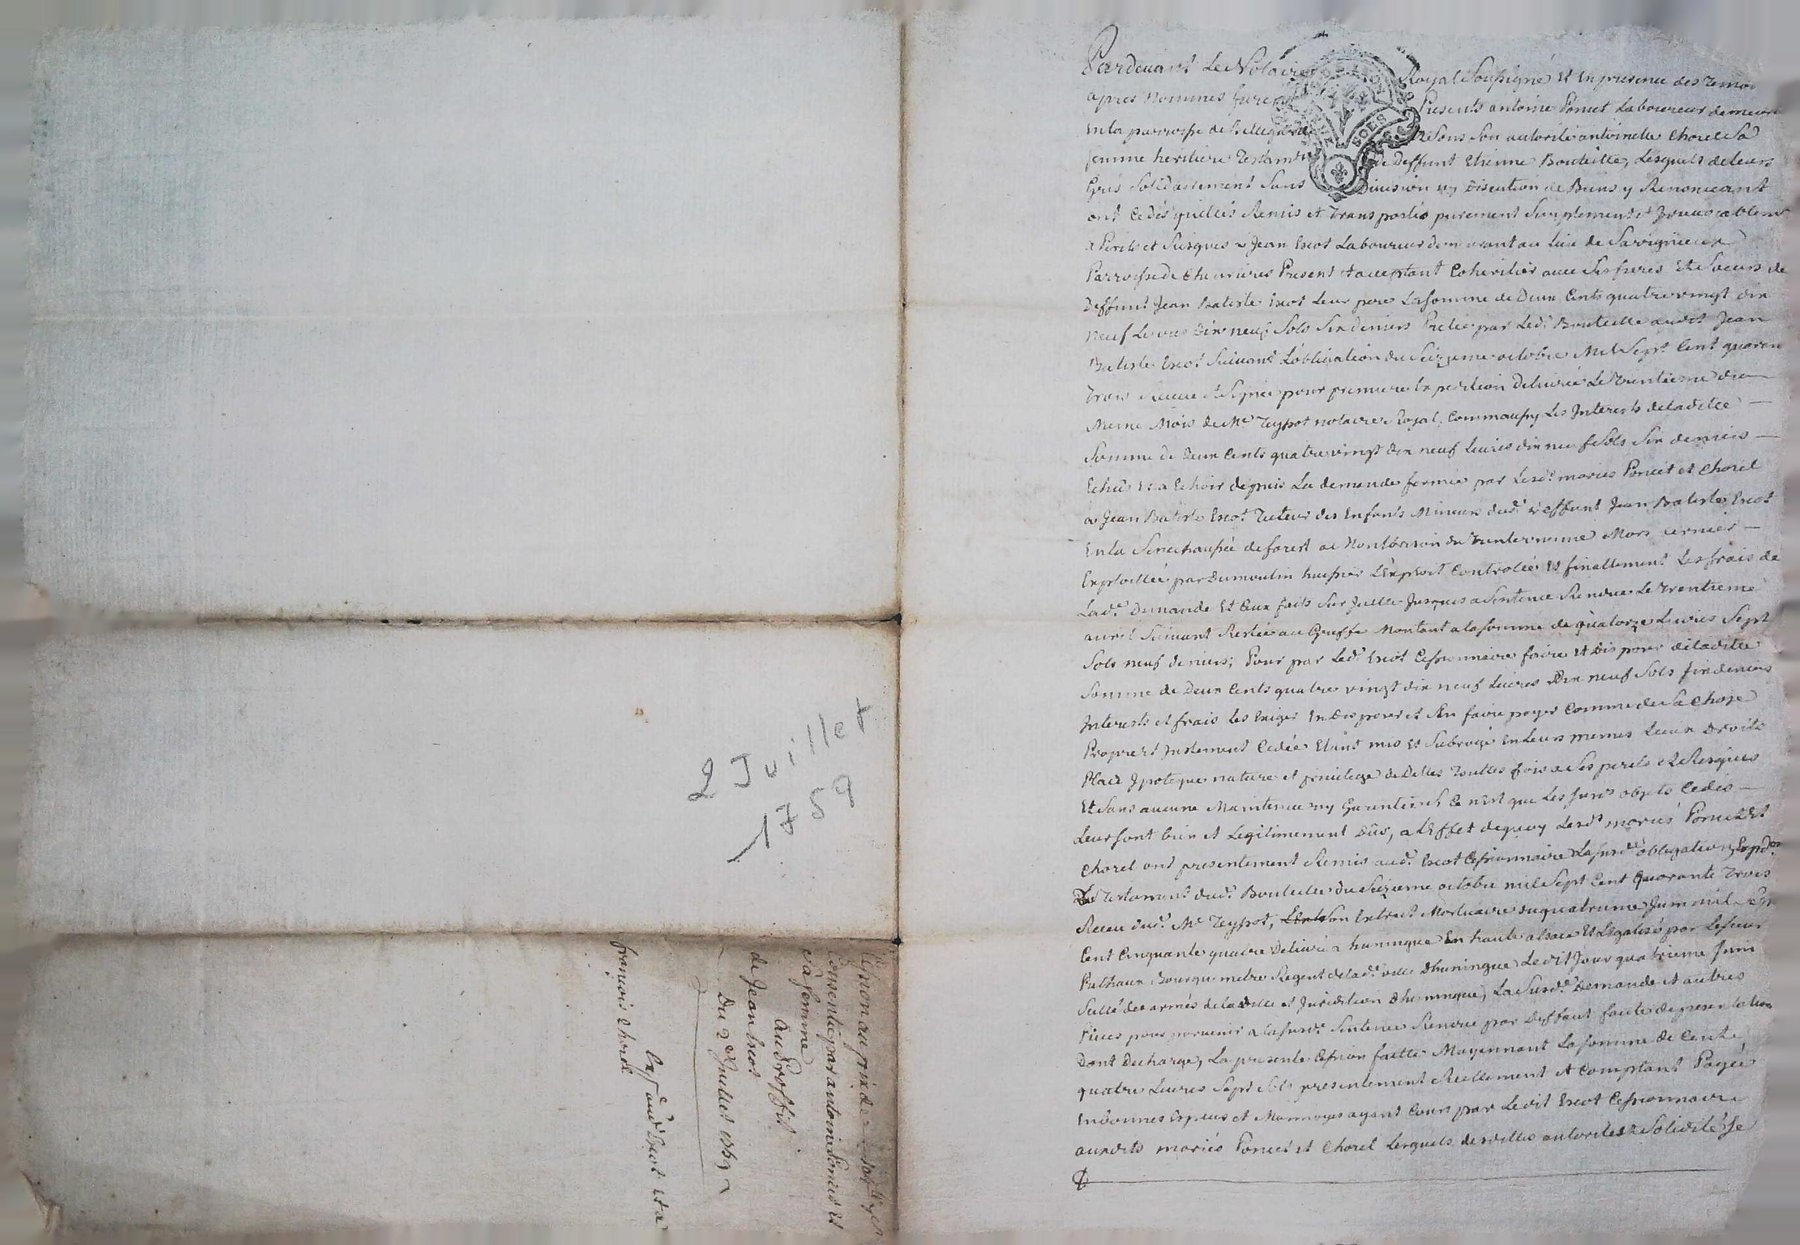 2 Juillet
1759
consentie par antoine Poncet et
sa femme
au Proffit
de Jean Escot
Du 2e Juillet 1759
françois Chorel
Pardevant Le Notaire Royal Soussigné Et En presence des Temoins
apres Nommés furent Presents antoine Poncet Laboureur
En la parroisse de Bellegarde Et Sous Son autorité antoinette Chorel Sa
femme heritiere Testamre de Deffunt Etienne Bouteille, Lesquels de Leurs
Grés Solidairement Sans Division ny Discution de Biens y Renonceant
ont Cedés quittés Remis et Transportés purement Simplement et Irrevocablement
a Perils et Risques a Jean Escot Laboureur demeurant au Lieu de Savignieux
Parroisse de Chevrieres Present et acceptant Coheritier avec Ses freres Et Soeurs de
Deffunt Jean Batiste Escot Leur pere La Somme de Deux Cents quatre vingt dix
Neuf Livres Dix neuf Sols Six deniers par Led. Bouteille audit Jean
Batiste Escot Suivant L'obligation du Seizieme octobre Mil Sept Cent quarante
Trois Receue Et Signée pour premiere Expedition Delivrée Le Trentieme du
Meme Mois de Me Teypot notaire Royal, Comme aussy Les Interests de ladite
Somme de Deux Cents quatre vingt dix neuf Livres dix neuf Sols Six deniers
Echus Et a Echoir depuis La demande formée par Lesd. mariés Poncet et Chorel
a Jean Batiste Escot Tuteur des Enfants Mineurs dud. Deffunt Jean Batiste Escot
En la Senechaussée de forest a Montbrison du Mars dernier
Exploittée par Dumoulin huissier L'Exploit Controlée Et finallement Les frais de
Lade Demande Et Ceux faits Sur Icelle Jusques a Sentence Rendue Le Trentieme
avril Suivant Restée au Greffe Montant a la Somme de quatorze Livres Sept
Sols neuf deniers; Pour par Led. Escot Cessionnaire faire Et Disposer de ladite
Somme de Deux Cents quatre vingt dix neuf Livres Dix neuf Sols Six deniers
Interests et frais Les Exiger En Disposer et S'en faire payer Comme de Sa Chose
Propre et Justement Cedée Etant mis Et Subrogé En Leurs memes Lieux Droits
Place Ipoteque nature et privilege d'Icelles Touttes fois a Ses perils et Risques
Et Sans aucune Maintenue ny Garentie Si Ce n'est que Les Susds objets Cedés
Leur Sont bien et Legitimement Dûs, a L'Effet de quoy Lesds mariés Poncet Et
Chorel ont presentement Remis aud. Escot Cessionnaire La Susde obligation
Testament dud. Bouteille du Seizieme octobre mil Sept Cent Quarante Trois
Receu dud. Me Teypot, Son Extrait Mortuaire du quatrieme Juin mil Sept
Cent Cinquante quatre Delivré a huningue En haute alsace Et Legalisé par Le Sieur
Bourguemetre Regent de lade ville D'huningue Le dit Jour quatrieme Juin
Scellé des armes de la Ville et Juridition d'huningue, La Susde Demande et autres
Pieces pour parvenir a la Susde Sentence Rendue par Deffaut faute de presentation
Dont Decharge, La presente Cession faitte Moyennant La Somme de Cents
quatre Livres Sept Sols presentement Reellement Et Comptant Payée
En bonnes Especes et Monnoyes ayant Cours par Le dit Escot Cessionnaire
auxdits mariés Poncet et Chorel Lesquels de dittes autorités et Solidité Se